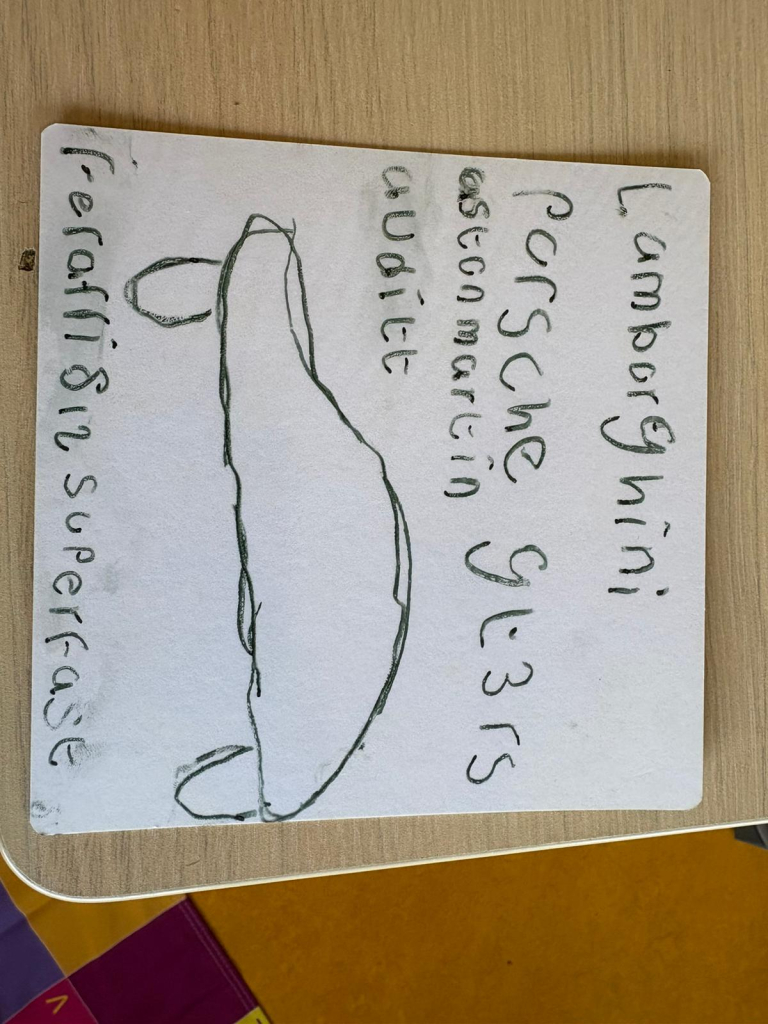 Lamborghini
Porsche gt3rs
aston martin
auditt
Feraffi 812 superfast